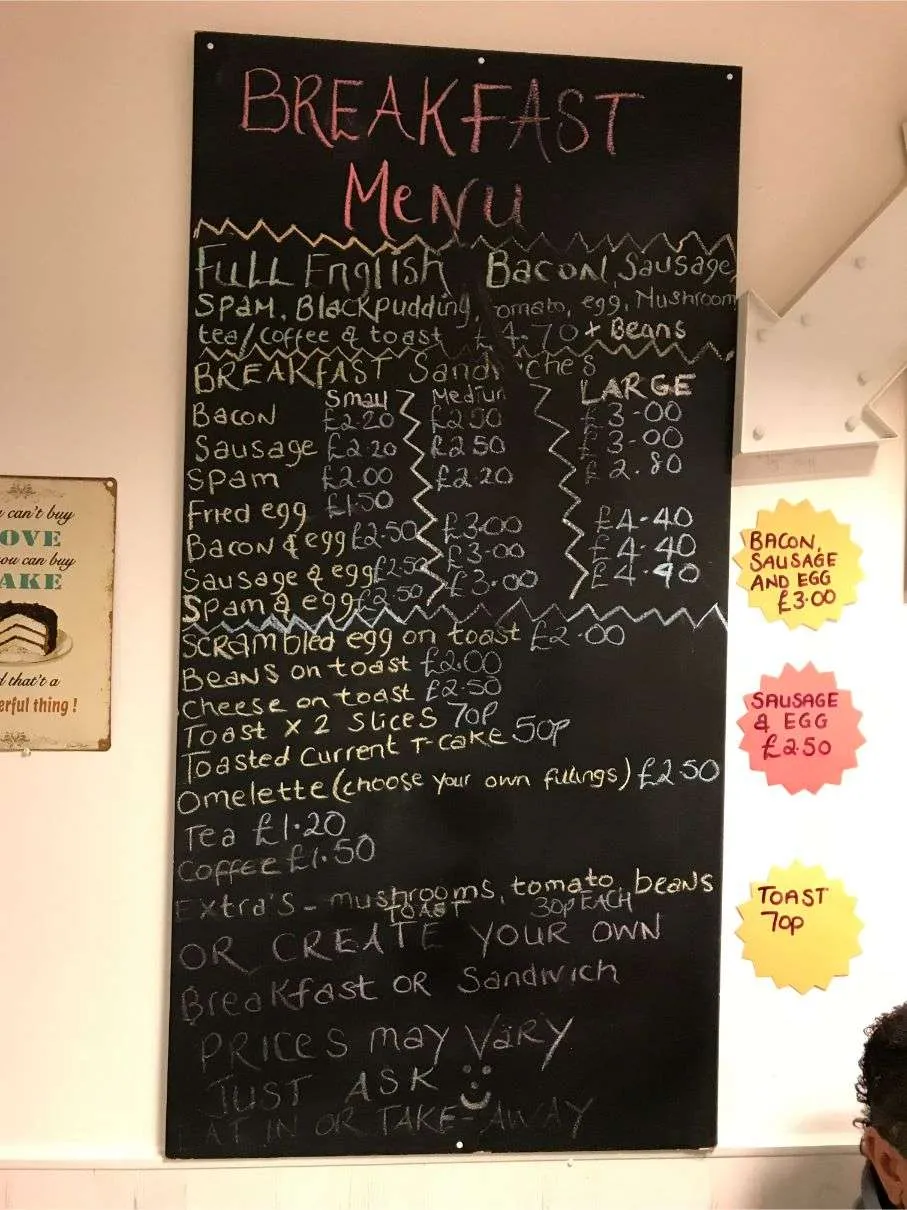 BREAKFAST
MeNU
FULL English Bacon, Sausage,
Spam, Blackpudding, tomato, egg, Mushroom
tea/coffee & toast £4.70 + Beans
BREAKFAST Sandwiches
Small Medium LARGE
Bacon £2.20 £2.50 £3.00
Sausage £2.20 £2.50 £3.00
Spam £2.00 £2.20 £2.80
Fried egg £1.50
Bacon & egg £2.50 £3.00 £4.40
Sausage & egg £2.50 £3.00 £4.40
Spam & egg £2.50 £3.00 £4.40
SCRAMBled egg on toast £2.00
Beans on toast £2.00
Cheese on toast £2.50
Toast x 2 Slices 70P
Toasted Current T-cake 50p
Omelette (choose your own fullings) £2.50
Tea £1.20
Coffee £1.50
Extra's - mushrooms, tomato, beans
TOAST 30P EACH
OR CREATE YOUR OWN
Breakfast OR Sandwich
PRICES may VARY
JUST ASK
EAT IN OR TAKE-AWAY
BACON,
SAUSAGE
AND EGG
£3.00
SAUSAGE
& EGG
£2.50
TOAST
70p
can't buy
OVE
ou can buy
AKE
that's a
erful thing!